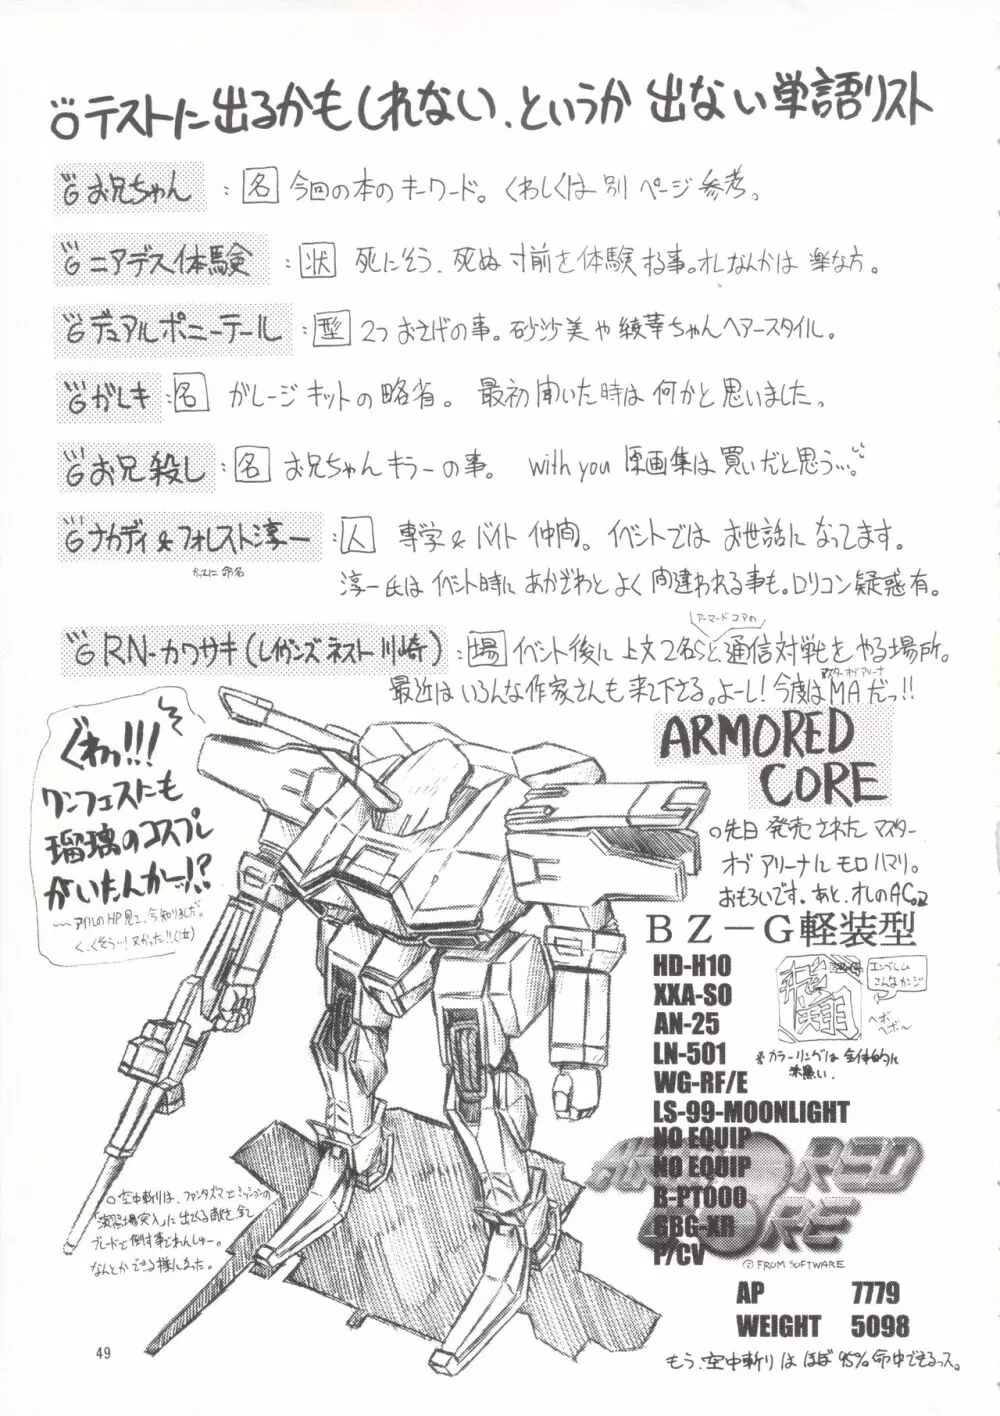 テストに出るかもしれない、というか 出ない単語リスト
お兄ちゃん : 名 今回の本のキーワード。くわしくは別ページ参考。
ニアデス体験 : 状 死にそう、死ぬ寸前を体験する事。オレなんかは楽な方。
デュアルポニーテール : 型 2つおさげの事。砂沙美や綾華ちゃんヘアースタイル。
ガレキ : 名 ガレージキットの略省。 最初聞いた時は何かと思いました。
お兄殺し : 名 お兄ちゃんキラーの事。 with you 原画集は買いだと思う…。
ナカディ & フォレスト淳一 : 人 専学 & バイト仲間。イベントではお世話になってます。
かってに命名
淳一氏はイベント時にあかざわとよく間違われる事も。ロリコン疑惑有。
アーマードコアの
RN-カワサキ(レイヴンズネスト川崎) : 場 イベント後に上文2名らと、通信対戦をやる場所。
マスターオブアリーナ
最近はいろんな作家さんも来て下さる。よーし!今度はMAだっ!!
ぐわっ!!!
ワンフェスにも
瑠璃のコスプレ
がいたんかーッ!?
〜〜アイルのHP見て、今知りました。
く、くそう…!ヌかった!!(泣)
ARMORED
CORE
○先日発売されたマスター
オブアリーナにモロハマリ。
おもろいです。あと、オレのACっス
BZ－G軽装型
HD-H10
XXA-SO
AN-25
LN-501
WG-RF/E
LS-99-MOONLIGHT
NO EQUIP
NO EQUIP
B-PT000
GBG-XR
P/CV
エンブレム
こんなカンジ
飛翔
ヘボ
ヘボ〜
※カラーリングは全体的に
赤黒い。
ARMORED
CORE
© FROM SOFTWARE
○空中斬りは、ファンタズマでミッションの
「演習場突入」に出てくる敵を、全て
ブレードで倒す事でれんしゅー。
なんとかできる様になった。
AP 7779
WEIGHT 5098
もう、空中斬りはほぼ95%命中できるっス。
49